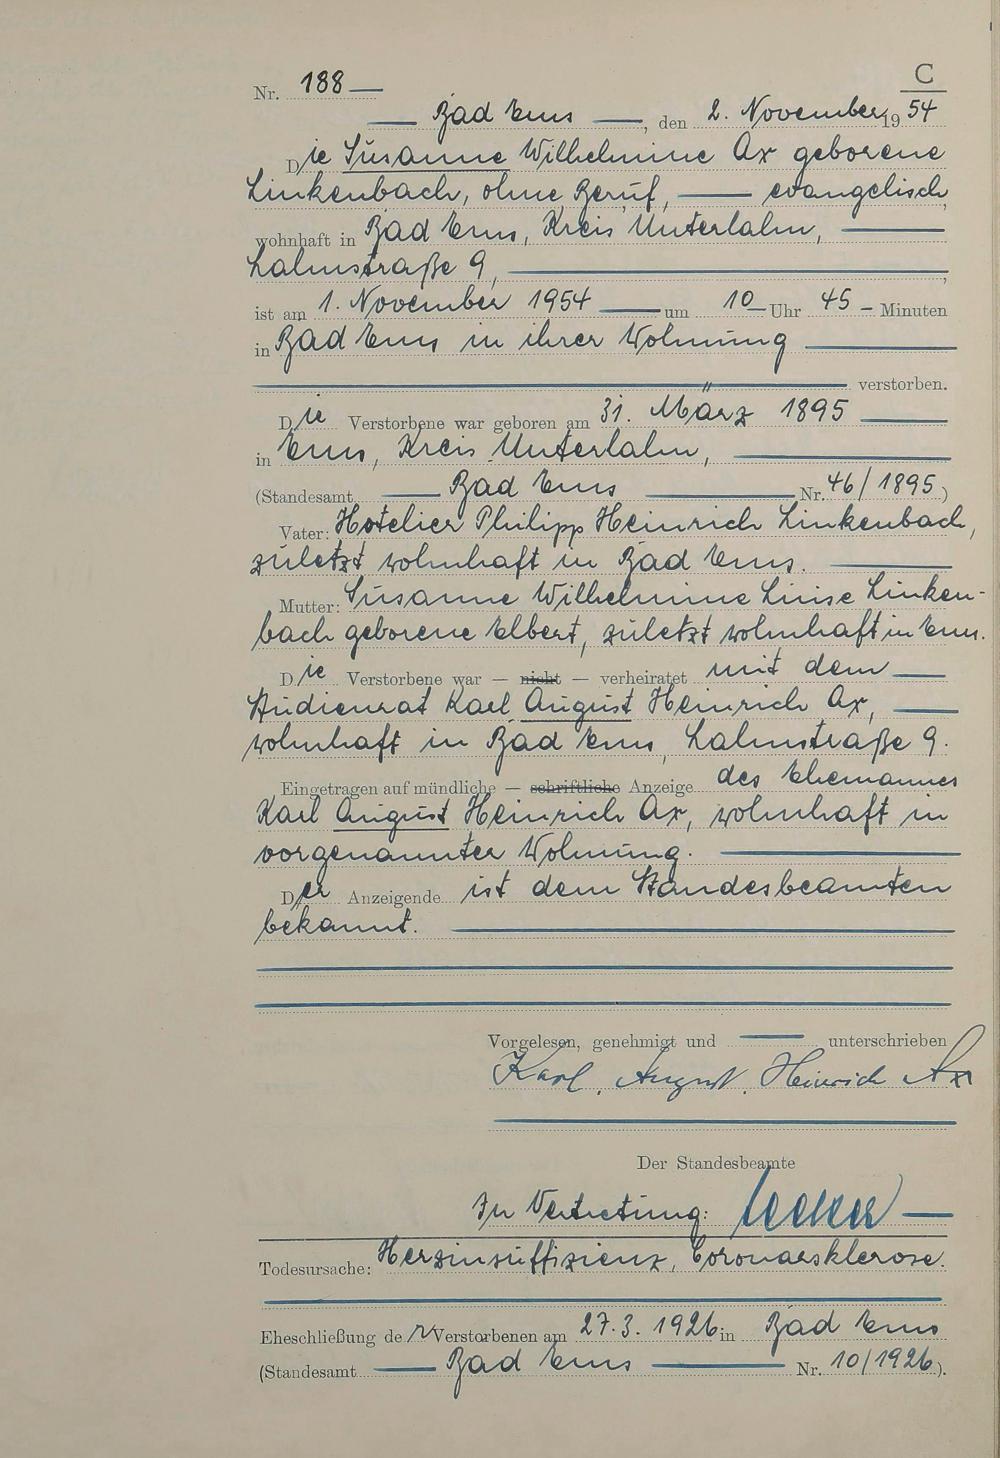 C
Nr. 188 —
— Bad Ems —, den 2. November 1954
Die Susanne Wilhelmine Ax geborene
Linkenbach, ohne Beruf, — evangelisch,
wohnhaft in Bad Ems, Kreis Unterlahn, —
Lahnstraße 9, —,
ist am 1. November 1954 — um 10 — Uhr 45 — Minuten
in Bad Ems in ihrer Wohnung —
— verstorben.
Die Verstorbene war geboren am 31. März 1895 —
in Ems, Kreis Unterlahn, —
(Standesamt — Bad Ems — Nr. 46/1895.)
Vater: Hotelier Philipp Heinrich Linkenbach,
zuletzt wohnhaft in Bad Ems. —
Mutter: Susanne Wilhelmine Luise Linken-
bach geborene Elbert, zuletzt wohnhaft in Ems.
Die Verstorbene war — nicht — verheiratet mit dem —
Studienrat Karl August Heinrich Ax, —
wohnhaft in Bad Ems, Lahnstraße 9.
Eingetragen auf mündliche — schriftliche Anzeige des Ehemannes
Karl August Heinrich Ax, wohnhaft in
vorgenannter Wohnung. —
Der Anzeigende ist dem Standesbeamten
bekannt. —
Vorgelesen, genehmigt und — unterschrieben
Karl August Heinrich Ax
Der Standesbeamte
In Vertretung: —
Todesursache: Herzinsuffizienz, Coronarsklerose.
Eheschließung der Verstorbenen am 27.3.1926 in Bad Ems
(Standesamt — Bad Ems — Nr. 10/1926.).